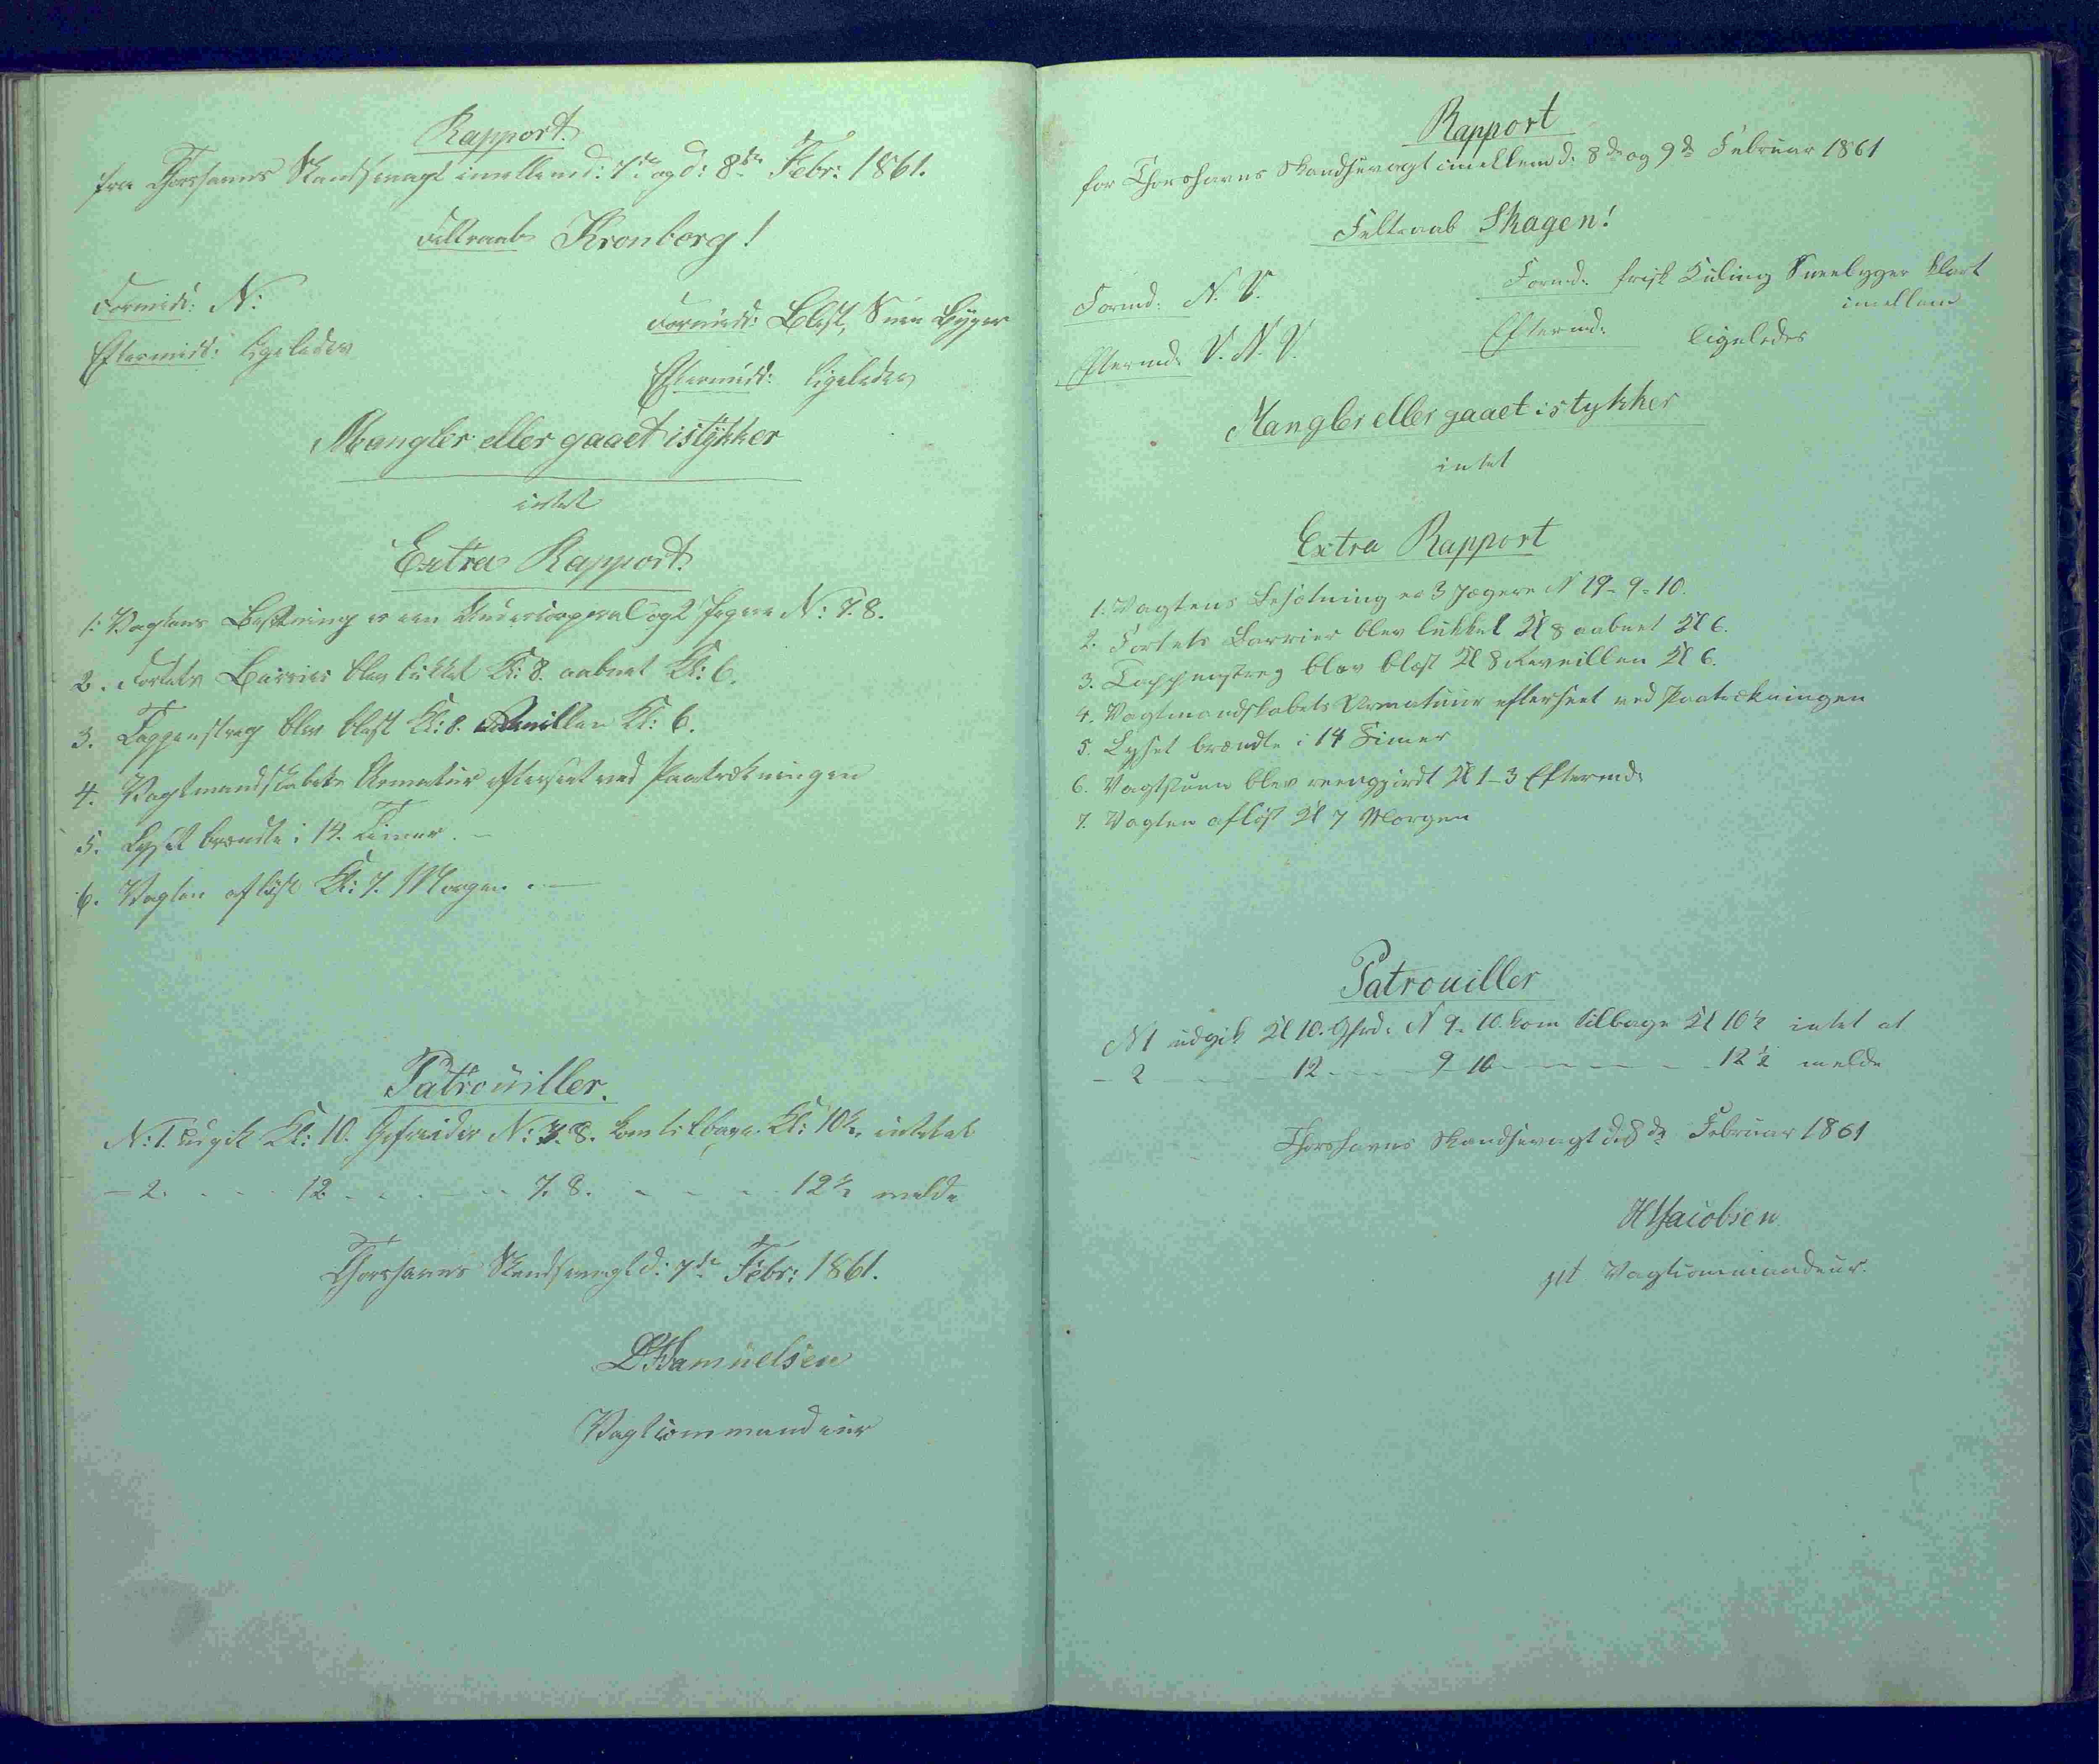 Rapport.
fra Thorshavns Skandsevagt imellem d: 7de og d: 8de Febr: 1861.
Feltraab Kronborg!
Formidd: N:
Formidd: Blæst, Snee Byger
Eftermidd: ligeledes
Eftermidd: ligeledes
Mangler eller gaaet istykker
intet
Extra Rapport.
1. Vagtens Besætning er een Undercorporal og 2 Jægere N: 7.8.
2. Fortets Barrier blev lukket Kl: 8. aabnet Kl: 6.
3. Tappenstreg blev blæst Kl: 8. Reveillen Kl: 6.
4. Vagtmandskabets Armatur efterseet ved Paatrækningen
5. Lyset brændte i 14. Timer. –
6. Vagten afløst Kl: 7. Morgen. —
Patrouiller.
N: 1. udgik Kl: 10. Gefreider N: 7.8. kom tilbage Kl: 10½ intet at
– 2. - - - 12 - - - - - 7. 8. - - - - 12½ melde
Thorshavns Skandsevagt d: 7de Febr: 1861.
Samuelsen
Vagtcommandeur
Rapport
for Thorshavns Skandsevagt imellem d. 8de og 9de Februar 1861
Feltraab Skagen!
Formd. N. V.
Formd. frisk Kuling Sneebyger klart
imellem
Eftermd. V. N. V.
Eftermd. ligeledes
Mangler eller gaaet istykker
intet
Extra Rapport
1. Vagtens Besætning er 3 Jægere N 19 - 9 - 10.
2. Fortets Barrier blev lukket Kl 8 aabnet Kl 6.
3. Tappenstreg blev blæst Kl 8 Reveillen Kl 6.
4. Vagtmandskabets Armatuur efterseet ved Paatrækningen
5. Lyset brændte i 14 Timer
6. Vagtstuen blev reengjordt Kl 1-3 Eftermd.
7. Vagten afløst Kl 7 Morgen
Patrouiller
N 1 udgik Kl 10. Gfrd. N 9 - 10. kom tilbage Kl 10½ intet at
- 2 - - - 12 - - - 9 10 - - - - - 12½ melde
Thorshavns Skandsevagt d. 8de Februar 1861
HJacobsen
pt Vagtcommandeur.